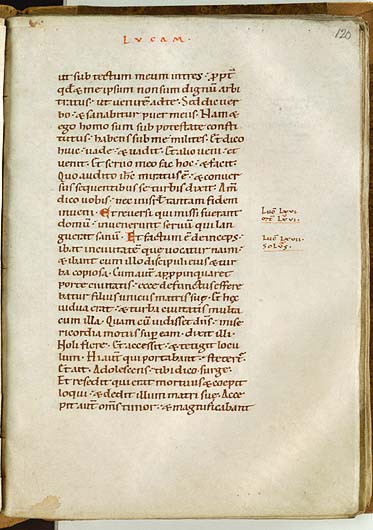 LVCAM.
120
ut sub tectum meum intres. ppt
qd & me ipsum non sum dignū arbi
tratus. ut venirē ad te. Sed dic ver
bo. & sanabitur puer meus. Nam &
ego homo sum sub potestate consti
tutus. habens sub me milites. Et dico
huic vade. & vadit. Et alio veni. et
venit. Et servo meo fac hoc. & facit.
Quo audito ihc miratus ē. & conver
sus sequentibus se turbis dixit. Am̄
dico vobis. nec in isrl tantam fidem
inveni. Et reversi qui missi fuerant
domū. invenerunt servū qui lan
guerat sanū. Et factum ē deinceps.
ibat in civitatē que vocatur naim.
& ibant cum illo discipuli eius & tur
ba copiosa. Cum autē appropinquaret
porte civitatis. ecce defunctus effere
batur filius unicus matris suę. Et hęc
vidua erat. & turba civitatis multa
cum illa. Quam cū vidisset dns. mise
ricordia motus sup eam. dixit illi.
Noli flere. Et accessit. & tetigit locu
lum. Hi autē qui portabant. steterr̄.
Et ait. Adolescens tibi dico surge.
Et resedit qui erat mortuus & coepit
loqui. & dedit illum matri suę. Acce
pit autē om̄s timor. & magnificabant
Luc̄ LXVI
LXVI.
Luc̄ LXVII.
SOLVS.